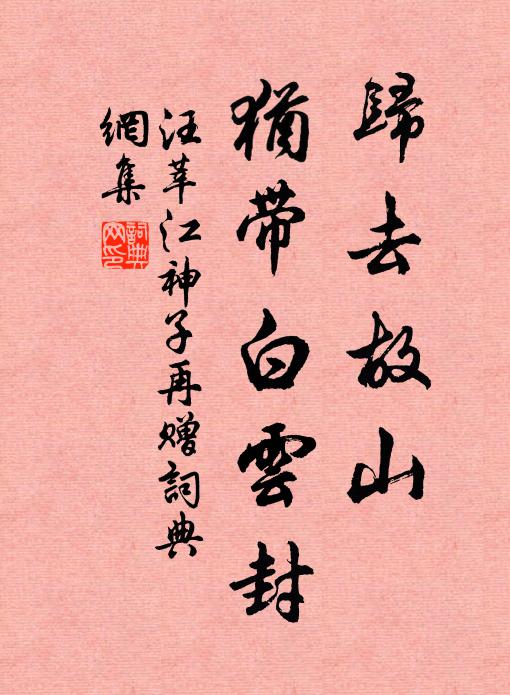 歸去故山
猶帶白雲封
汪莘江神子再贈詞典
網集
詞典網印